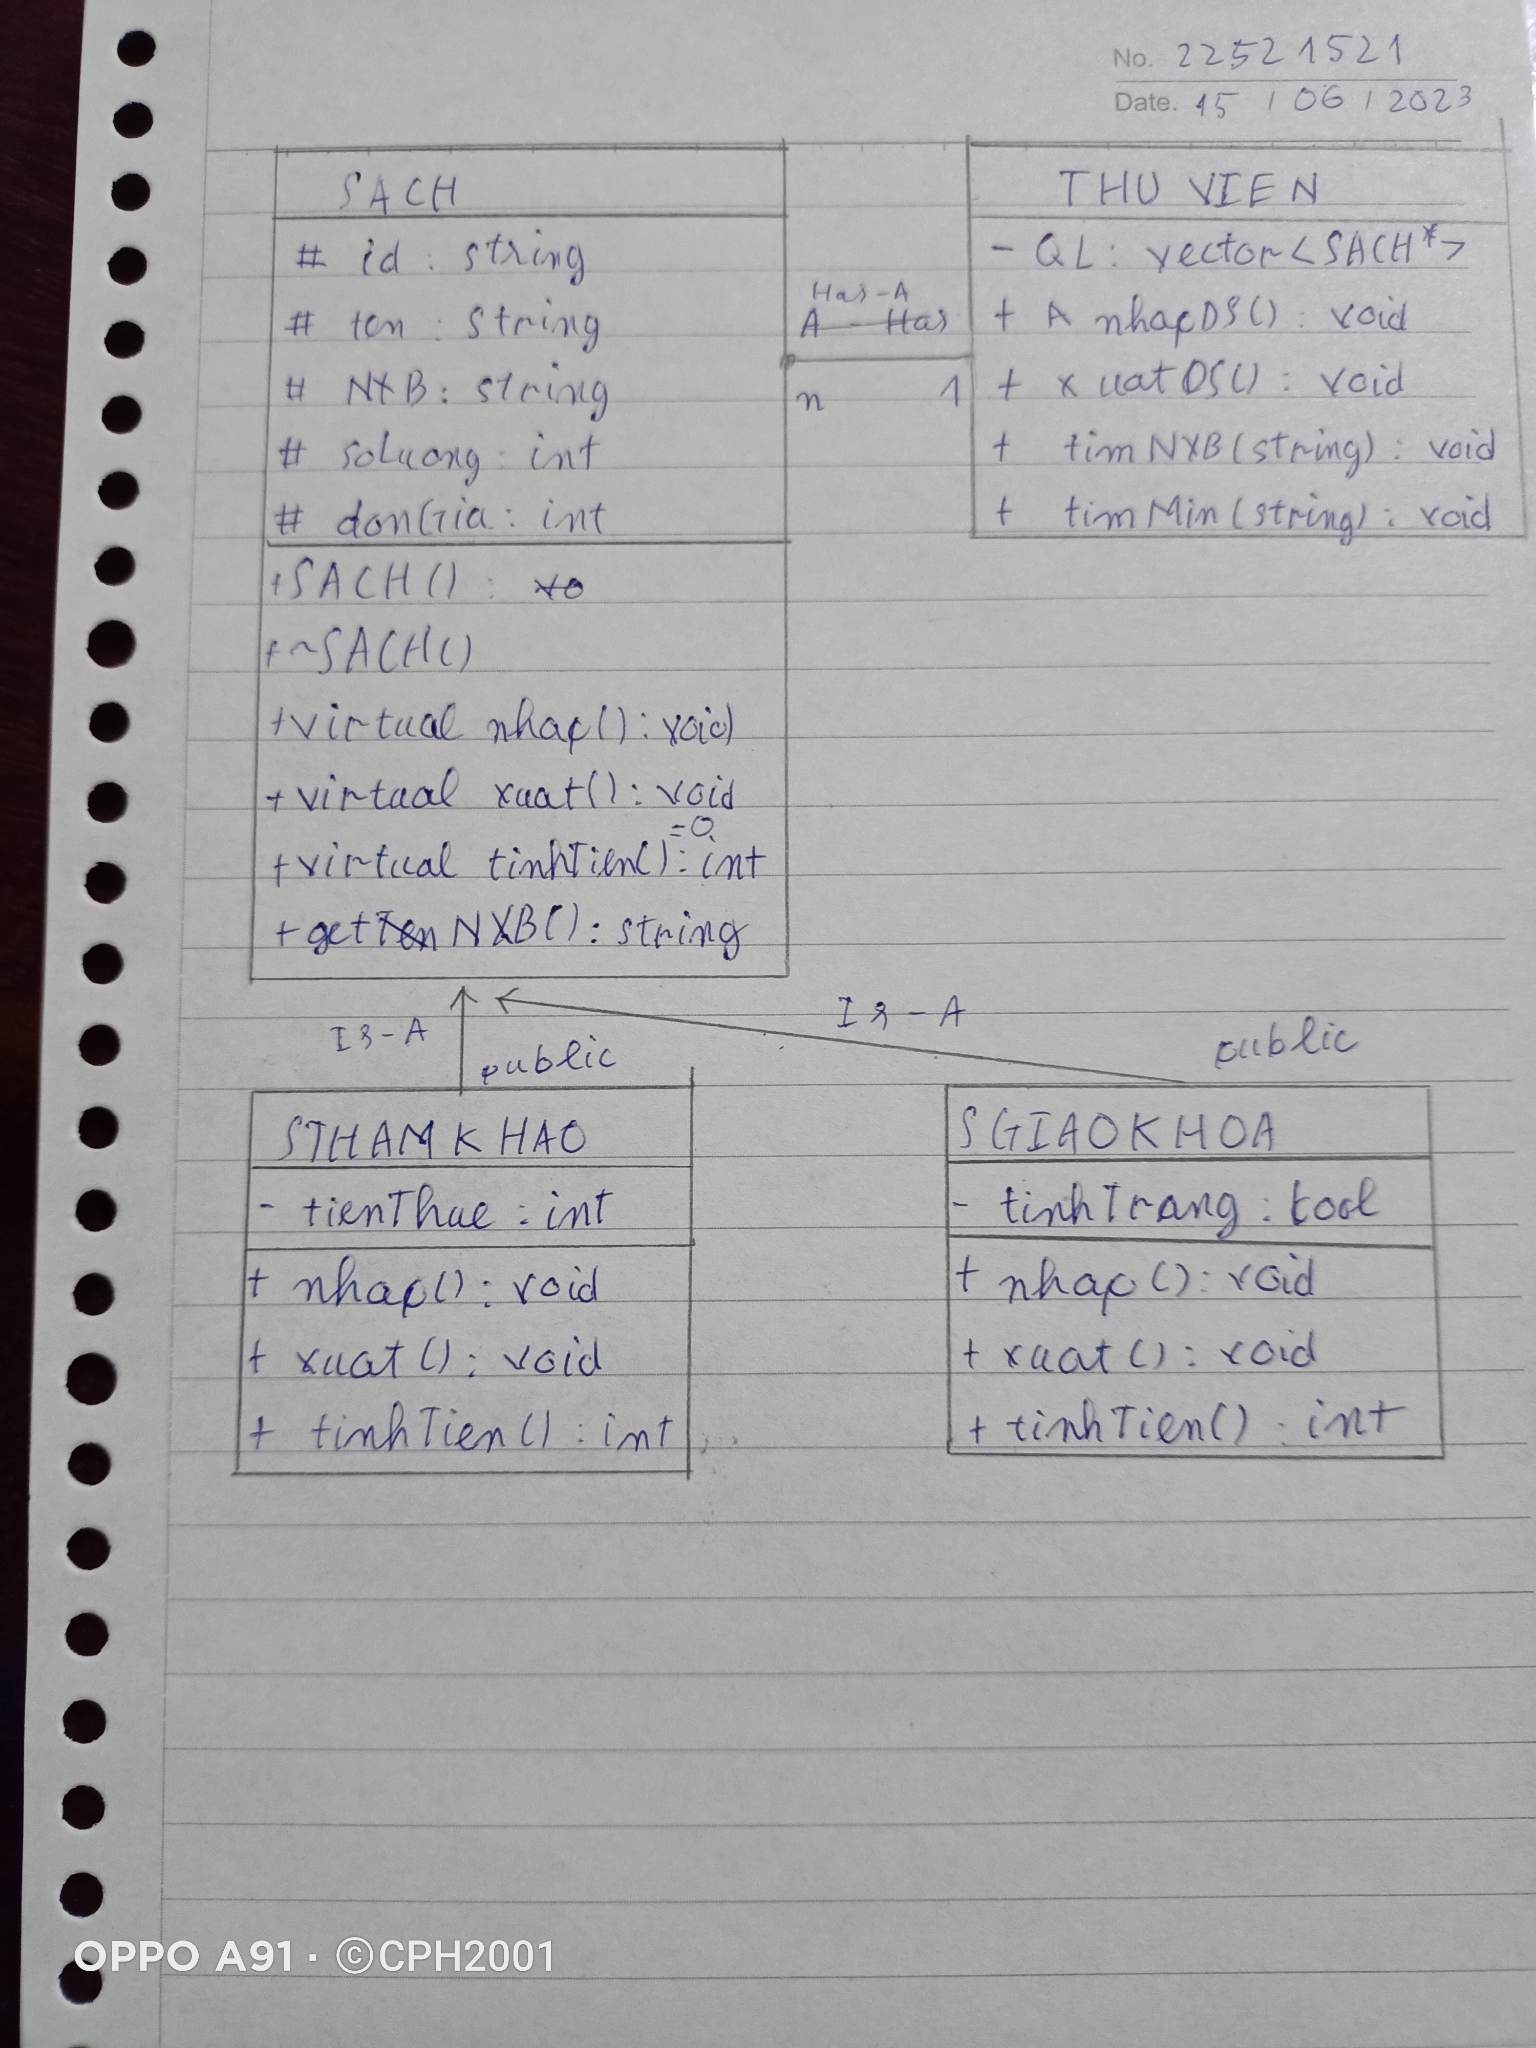 No. 22521521
Date. 15 / 06 / 2023
SACH
# id : string
# ten : string
# NXB : string
# soluong : int
# donGia : int
+SACH() :
+~SACH()
+virtual nhap() : void
+virtual xuat() : void
=0
+virtual tinhTien() : int
+getTen NXB() : string
Has-A
A - Has
n 1
THU VIEN
- QL : vector<SACH*>
+ nhapDS() : void
+ xuatDS() : void
+ timNXB(string) : void
+ timMin(string) : void
Is-A
public
Is-A
public
STHAMKHAO
- tienThue : int
+ nhap() : void
+ xuat() : void
+ tinhTien() : int
SGIAOKHOA
- tinhTrang : bool
+ nhap() : void
+ xuat() : void
+ tinhTien() : int
OPPO A91 · ©CPH2001